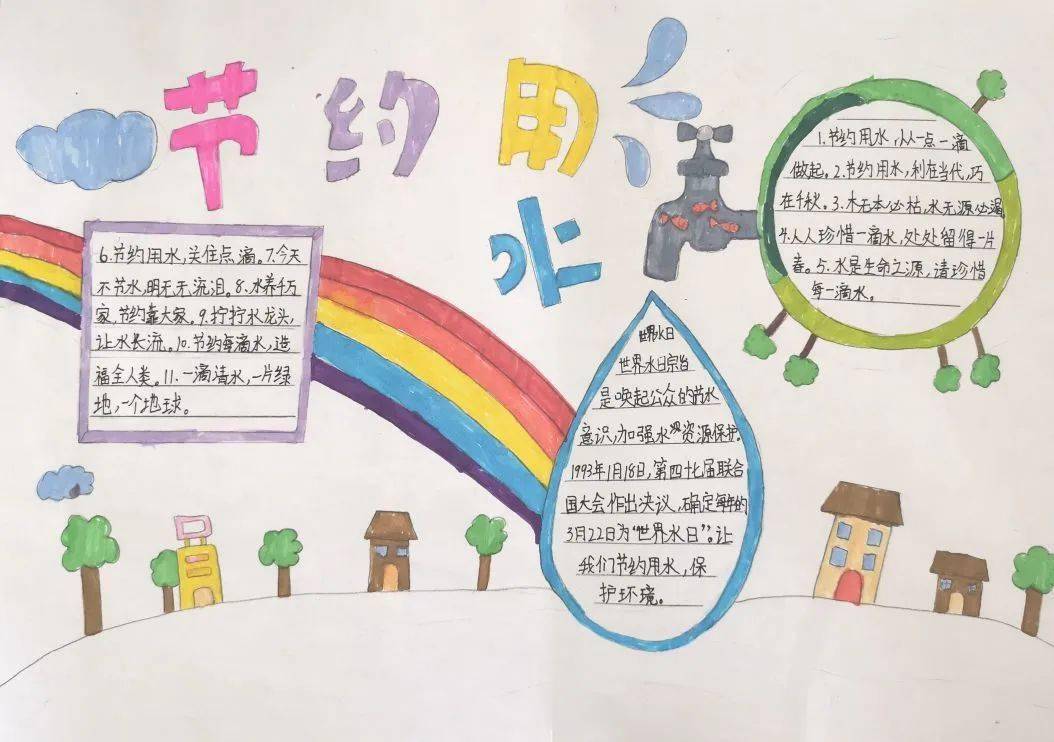 节约用
水
1.节约用水,从一点一滴
做起。2.节约用水,利在当代,巧
在千秋。3.木无本必枯,水无源必竭
4.人人珍惜一滴水,处处留得一片
春。5.水是生命之源,请珍惜
每一滴水。
6.节约用水,关住点滴。7.今天
不节水,明天无流泪。8.水养千万
家,节约靠大家。9.拧拧水龙头,
让水长流。10.节约每滴水,造
福全人类。11.一滴清水,一片绿
地,一个地球。
世界水日
世界水日宗旨
是唤起公众的节水
意识,加强水资源保护.
1993年1月18日,第四十七届联合
国大会作出决议,确定每年的
3月22日为"世界水日"。让
我们节约用水,保
护环境。